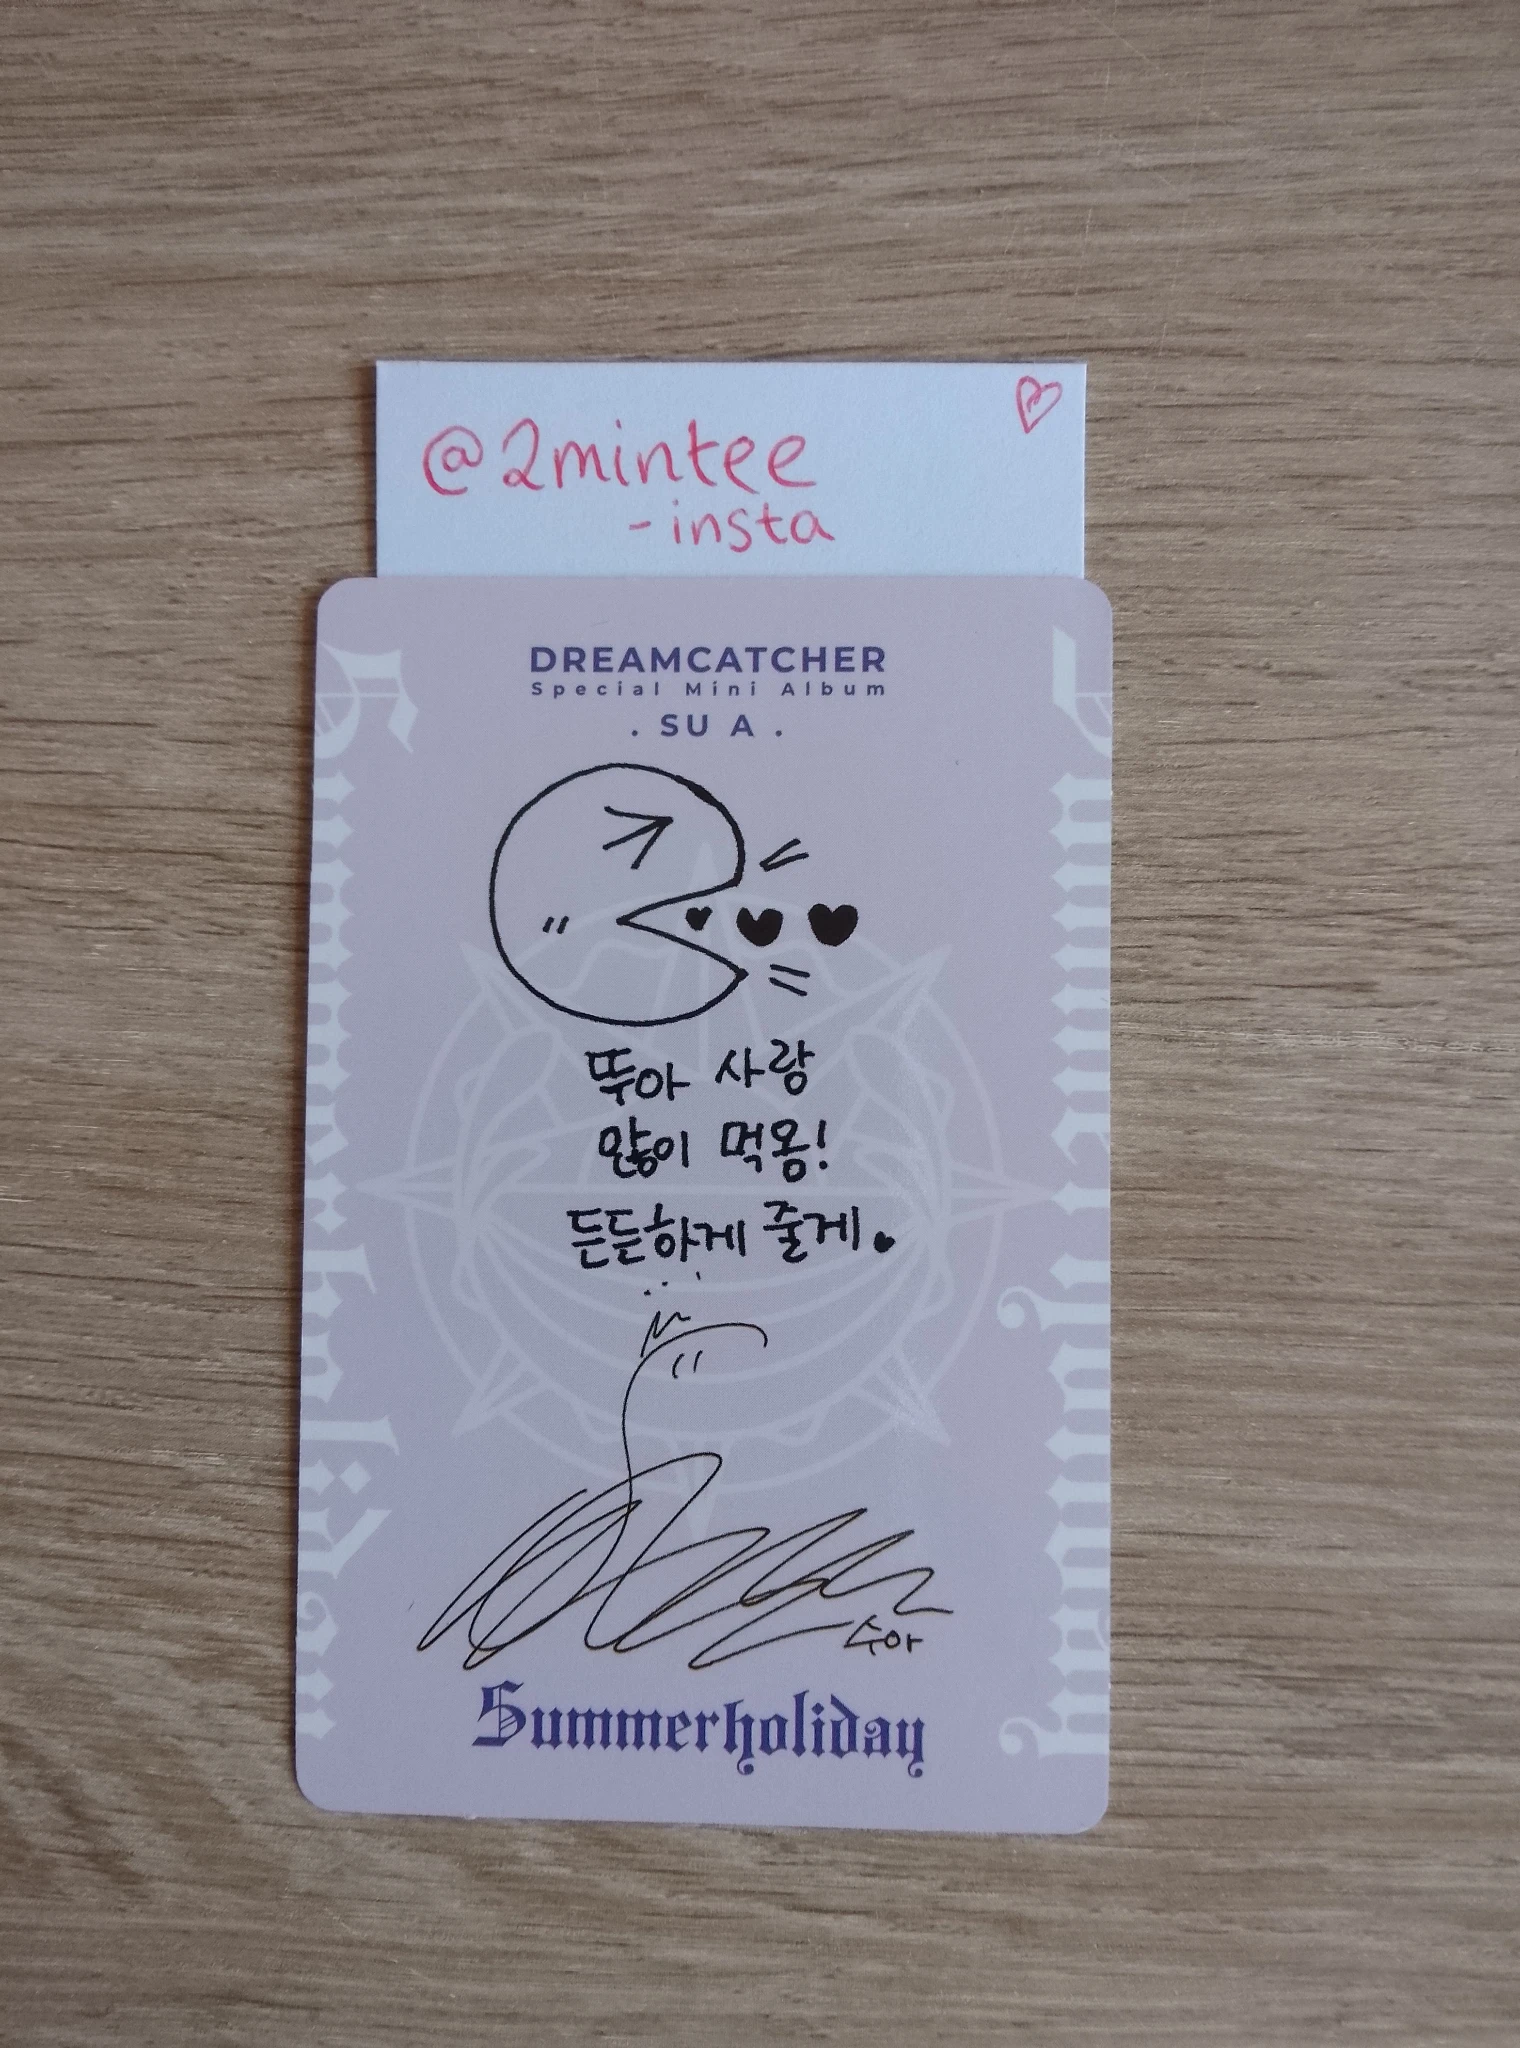 @2mintee
-insta
DREAMCATCHER
Special Mini Album
. SU A .
뚜아 사랑
많이 먹옹!
든든하게 줄게
수아
Summerholiday